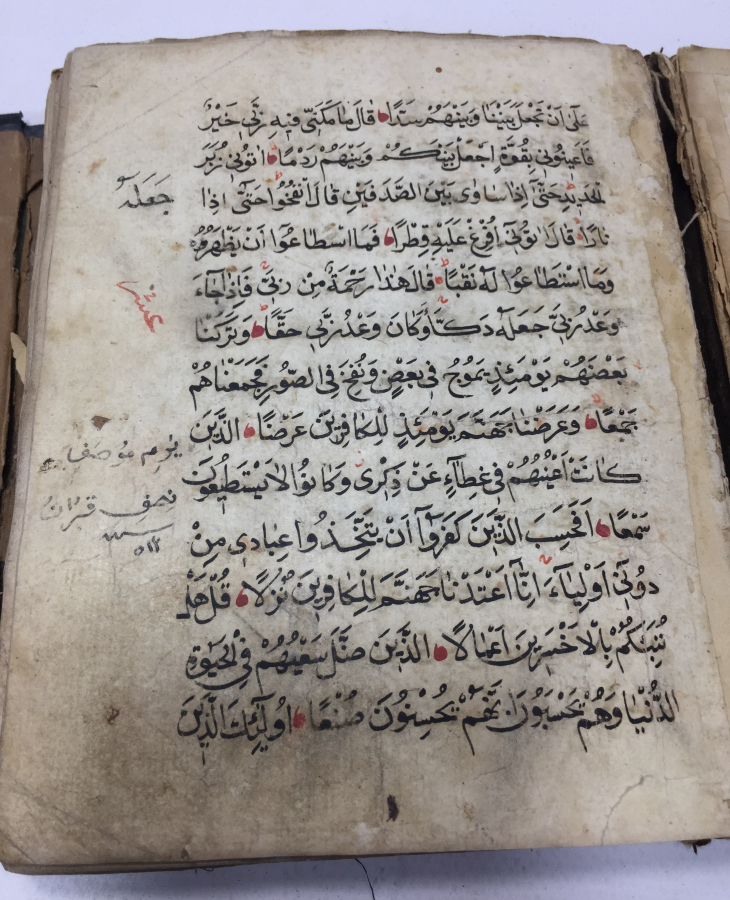 عَلٰى اَنْ تَجْعَلَ بَيْنَنَا وَبَيْنَهُمْ سَدًّا قَالَ مَا مَكَّنّٖى فٖيهِ رَبّٖى خَيْرٌ
فَاَعٖينُونٖى بِقُوَّةٍ اَجْعَلْ بَيْنَكُمْ وَبَيْنَهُمْ رَدْمًا اٰتُونٖى زُبَرَ
الْحَدٖيدِ حَتّٰٓى اِذَا سَاوٰى بَيْنَ الصَّدَفَيْنِ قَالَ انْفُخُوا حَتّٰٓى اِذَا
جَعَلَهُ
نَارًا قَالَ اٰتُونٖٓى اُفْرِغْ عَلَيْهِ قِطْرًا فَمَا اسْطَاعُٓوا اَنْ يَظْهَرُوهُ
وَمَا اسْتَطَاعُوا لَهُ نَقْبًا قَالَ هٰذَا رَحْمَةٌ مِنْ رَبّٖى فَاِذَا جَٓاءَ
عشر
وَعْدُ رَبّٖى جَعَلَهُ دَكَّٓاءَ وَكَانَ وَعْدُ رَبّٖى حَقًّا وَتَرَكْنَا
بَعْضَهُمْ يَوْمَئِذٍ يَمُوجُ فٖى بَعْضٍ وَنُفِخَ فِى الصُّورِ فَجَمَعْنَاهُمْ
جَمْعًا وَعَرَضْنَا جَهَنَّمَ يَوْمَئِذٍ لِلْكَافِرٖينَ عَرْضًا اَلَّذٖينَ
كَانَتْ اَعْيُنُهُمْ فٖى غِطَٓاءٍ عَنْ ذِكْرٖى وَكَانُوا لَا يَسْتَطٖيعُونَ
سَمْعًا اَفَحَسِبَ الَّذٖينَ كَفَرُٓوا اَنْ يَتَّخِذُوا عِبَادٖى مِنْ
نصف قران
سنه
دُونٖٓى اَوْلِيَٓاءَ اِنَّٓا اَعْتَدْنَا جَهَنَّمَ لِلْكَافِرٖينَ نُزُلًا قُلْ هَلْ
نُنَبِّئُكُمْ بِالْاَخْسَرٖينَ اَعْمَالًا اَلَّذٖينَ ضَلَّ سَعْيُهُمْ فِى الْحَيٰوةِ
الدُّنْيَا وَهُمْ يَحْسَبُونَ اَنَّهُمْ يُحْسِنُونَ صُنْعًا اُولٰٓئِكَ الَّذٖينَ